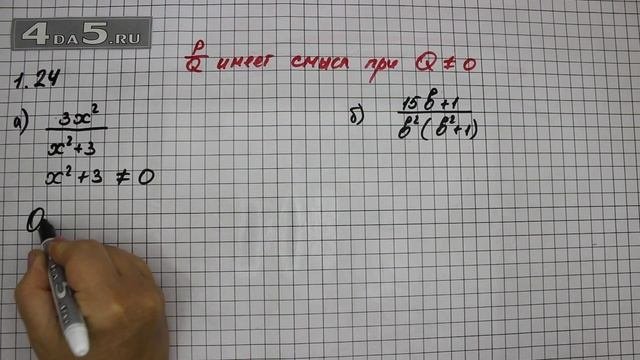 4DA5.RU
P/Q имеет смысл при Q ≠ 0
1.24
а) 3x²/(x²+3)
x²+3 ≠ 0
О
б) (15b+1)/(b²(b²+1))
4DA5.RU